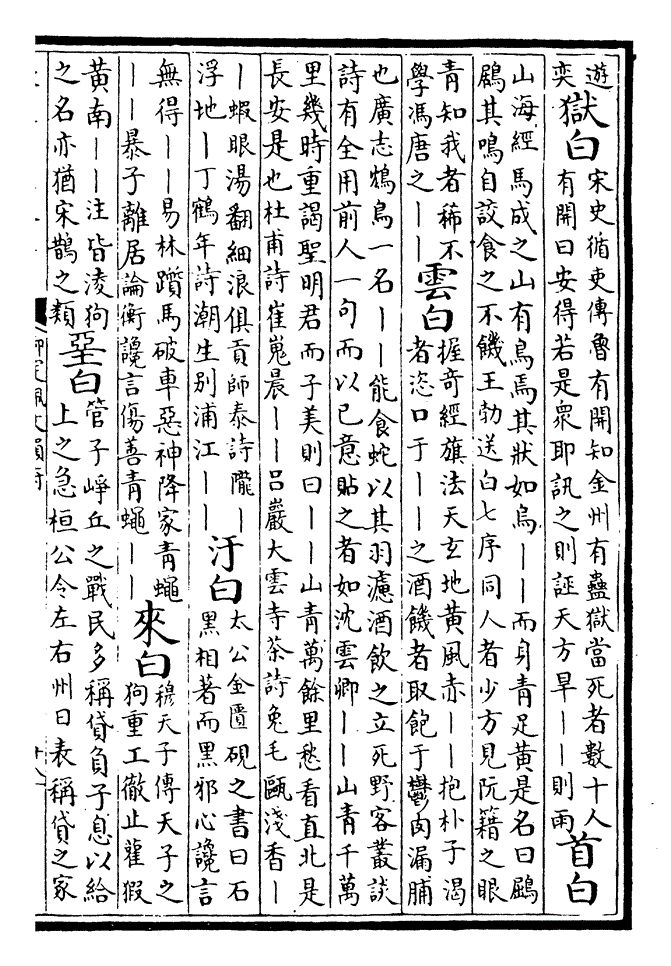 遊
奕
獄白
宋史循吏傳魯有開知金州有蠱獄當死者數十人
有開曰安得若是衆耶訊之則誣天方旱｜｜則雨
首白
山海經馬成之山有鳥焉其狀如烏｜｜而身青足黃是名曰鶌
鶋其鳴自詨食之不饑王勃送白七序同人者少方見阮籍之眼
青知我者稀不
學馮唐之｜｜
雲白
握奇經旗法天玄地黃風赤｜｜抱朴子渴
者恣口于｜｜之酒饑者取飽于鬱肉漏脯
也廣志鴆鳥一名｜｜能食蛇以其羽濾酒飲之立死野客叢談
詩有全用前人一句而以已意貼之者如沈雲卿｜｜山青千萬
里幾時重謁聖明君而子美則曰｜｜山青萬餘里愁看直北是
長安是也杜甫詩崔嵬晨｜｜呂巖大雲寺茶詩兔毛甌淺香｜
｜蝦眼湯翻細浪俱貢師泰詩隴｜
浮地｜丁鶴年詩潮生别浦江｜｜
汙白
太公金匱硯之書曰石
黑相著而黑邪心讒言
無得｜｜易林躓馬破車惡神降家青蠅
｜｜暴子離居論衡讒言傷善青蠅｜｜
來白
穆天子傳天子之
狗重工徹止雚猳
黃南｜｜注皆淩狗
之名亦猶宋鵲之類
堊白
管子崢丘之戰民多稱貸負子息以給
上之急桓公令左右州曰表稱貸之家